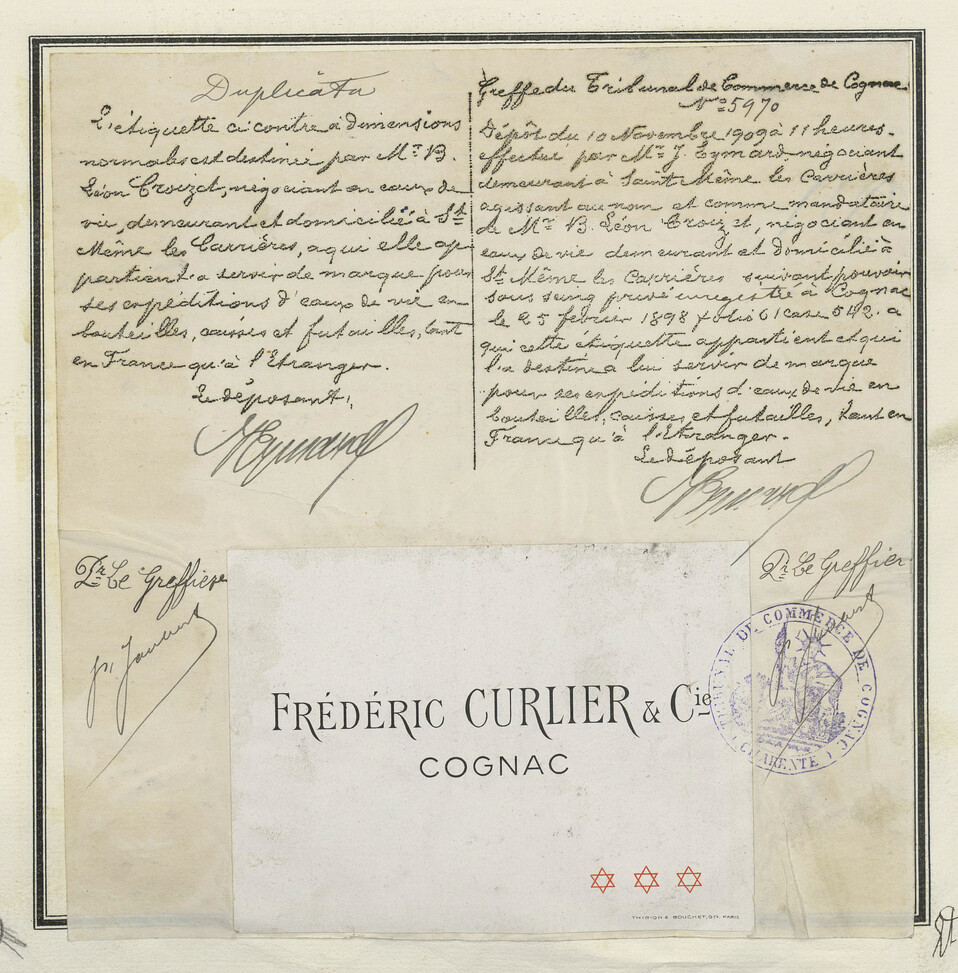 Duplicata
L'étiquette ci contre à dimensions
normales est destinée par Mr. B.
Léon Croizet, négociant en eaux de
vie, demeurant et domicilié à St
Même les Carrières, a qui elle ap
partient a servir de marque pour
ses expéditions d'eaux de vie en
bouteilles, caisses et futailles, tant
en France qu'à l'Etranger.
Le déposant,
Pr Le Greffier
Greffe du Tribunal de Commerce de Cognac
No 5970
Dépôt du 10 Novembre 1909 à 11 heures.
effectué par Mr J. Eymard, négociant
demeurant à Saint Même les Carrières
agissant au nom et comme mandataire
de Mr B. Léon Croizet, négociant en
eaux de vie demeurant et domicilié à
St Même les Carrières suivant pouvoir
sous seing privé enregistré à Cognac
le 25 février 1898 folio 61 case 542. a
qui cette étiquette appartient et qui
l'a destine a lui servir de marque
pour ses expéditions d'eaux de vie en
bouteilles, caisses, et futailles, tant en
France qu'à l'Etranger.
Le déposant
Pr Le Greffier
TRIBUNAL DE COMMERCE DE COGNAC
(CHARENTE)
FRÉDÉRIC CURLIER & Cie
COGNAC
THIRION & BOUCHET, GR. PARIS